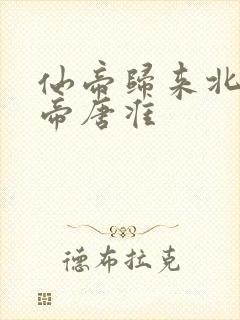 仙帝歸来北
帝唐淮
德布拉克